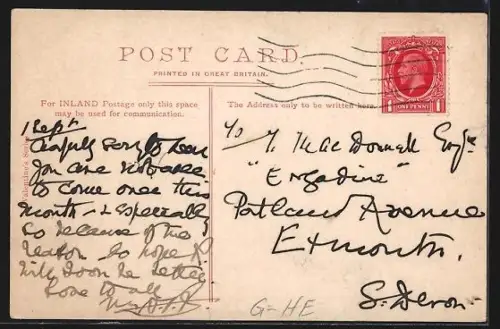 POST CARD.
PRINTED IN GREAT BRITAIN.
For INLAND Postage only this space
may be used for communication.
The Address only to be written here.
1 Sept
Awfully sorry to hear
you are not able
to come over this
month - & especially
so because of the
reason. So hope
will soon be better
Love to all
Valentine's Series
ONE PENNY
T. MacDonnell Esqre
"Engadine"
Portland Avenue
Exmouth.
S. Devon
G-HE